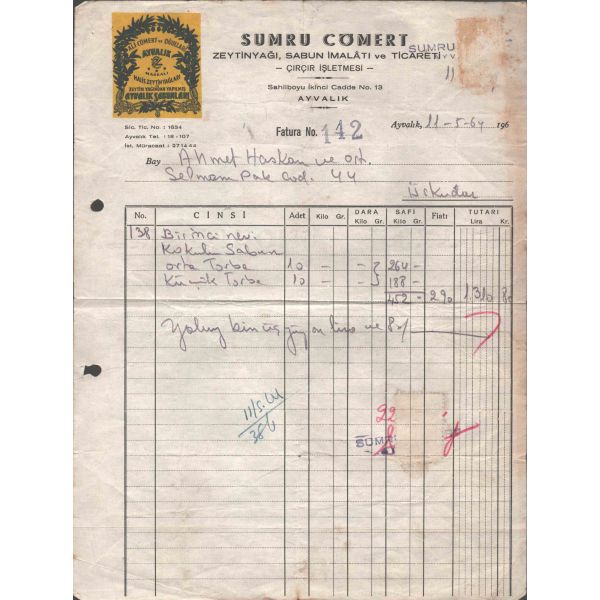 ALİ CÖMERT ve OĞULLARI
AYVALIK
MARKALI
HALİS ZEYTİN YAĞLARI
ZEYTİN YAĞINDAN YAPILMIŞ
AYVALIK SABUNLARI
SUMRU CÖMERT
SUMRU
ZEYTİNYAĞI, SABUN İMALÂTI ve TİCARETİ
– ÇIRÇIR İŞLETMESİ –
Sahilboyu İkinci Cadde No. 13
AYVALIK
Sic. Tic. No. : 1654
Ayvalık Tel. : 18-107
İst. Müracaat : 271444
Fatura No. 142
Ayvalık, 11-5-64 196
Bay Ahmet Haskan ve ort.
Selmanı Pak Cad. 44
Üsküdar
No. CİNSİ Adet Kilo Gr. DARA Kilo Gr. SAFİ Kilo Gr. Fiatı TUTARI Lira Kr.
138 Birinci nevi
Kokulu Sabun
orta Torba 10 – – 264 –
Küçük Torba 10 – – 188 –
452 – 290 1.310 80
Yalnız bin üç yüz on lira ve 80/
11/5/64
386
22
8
SUMRU